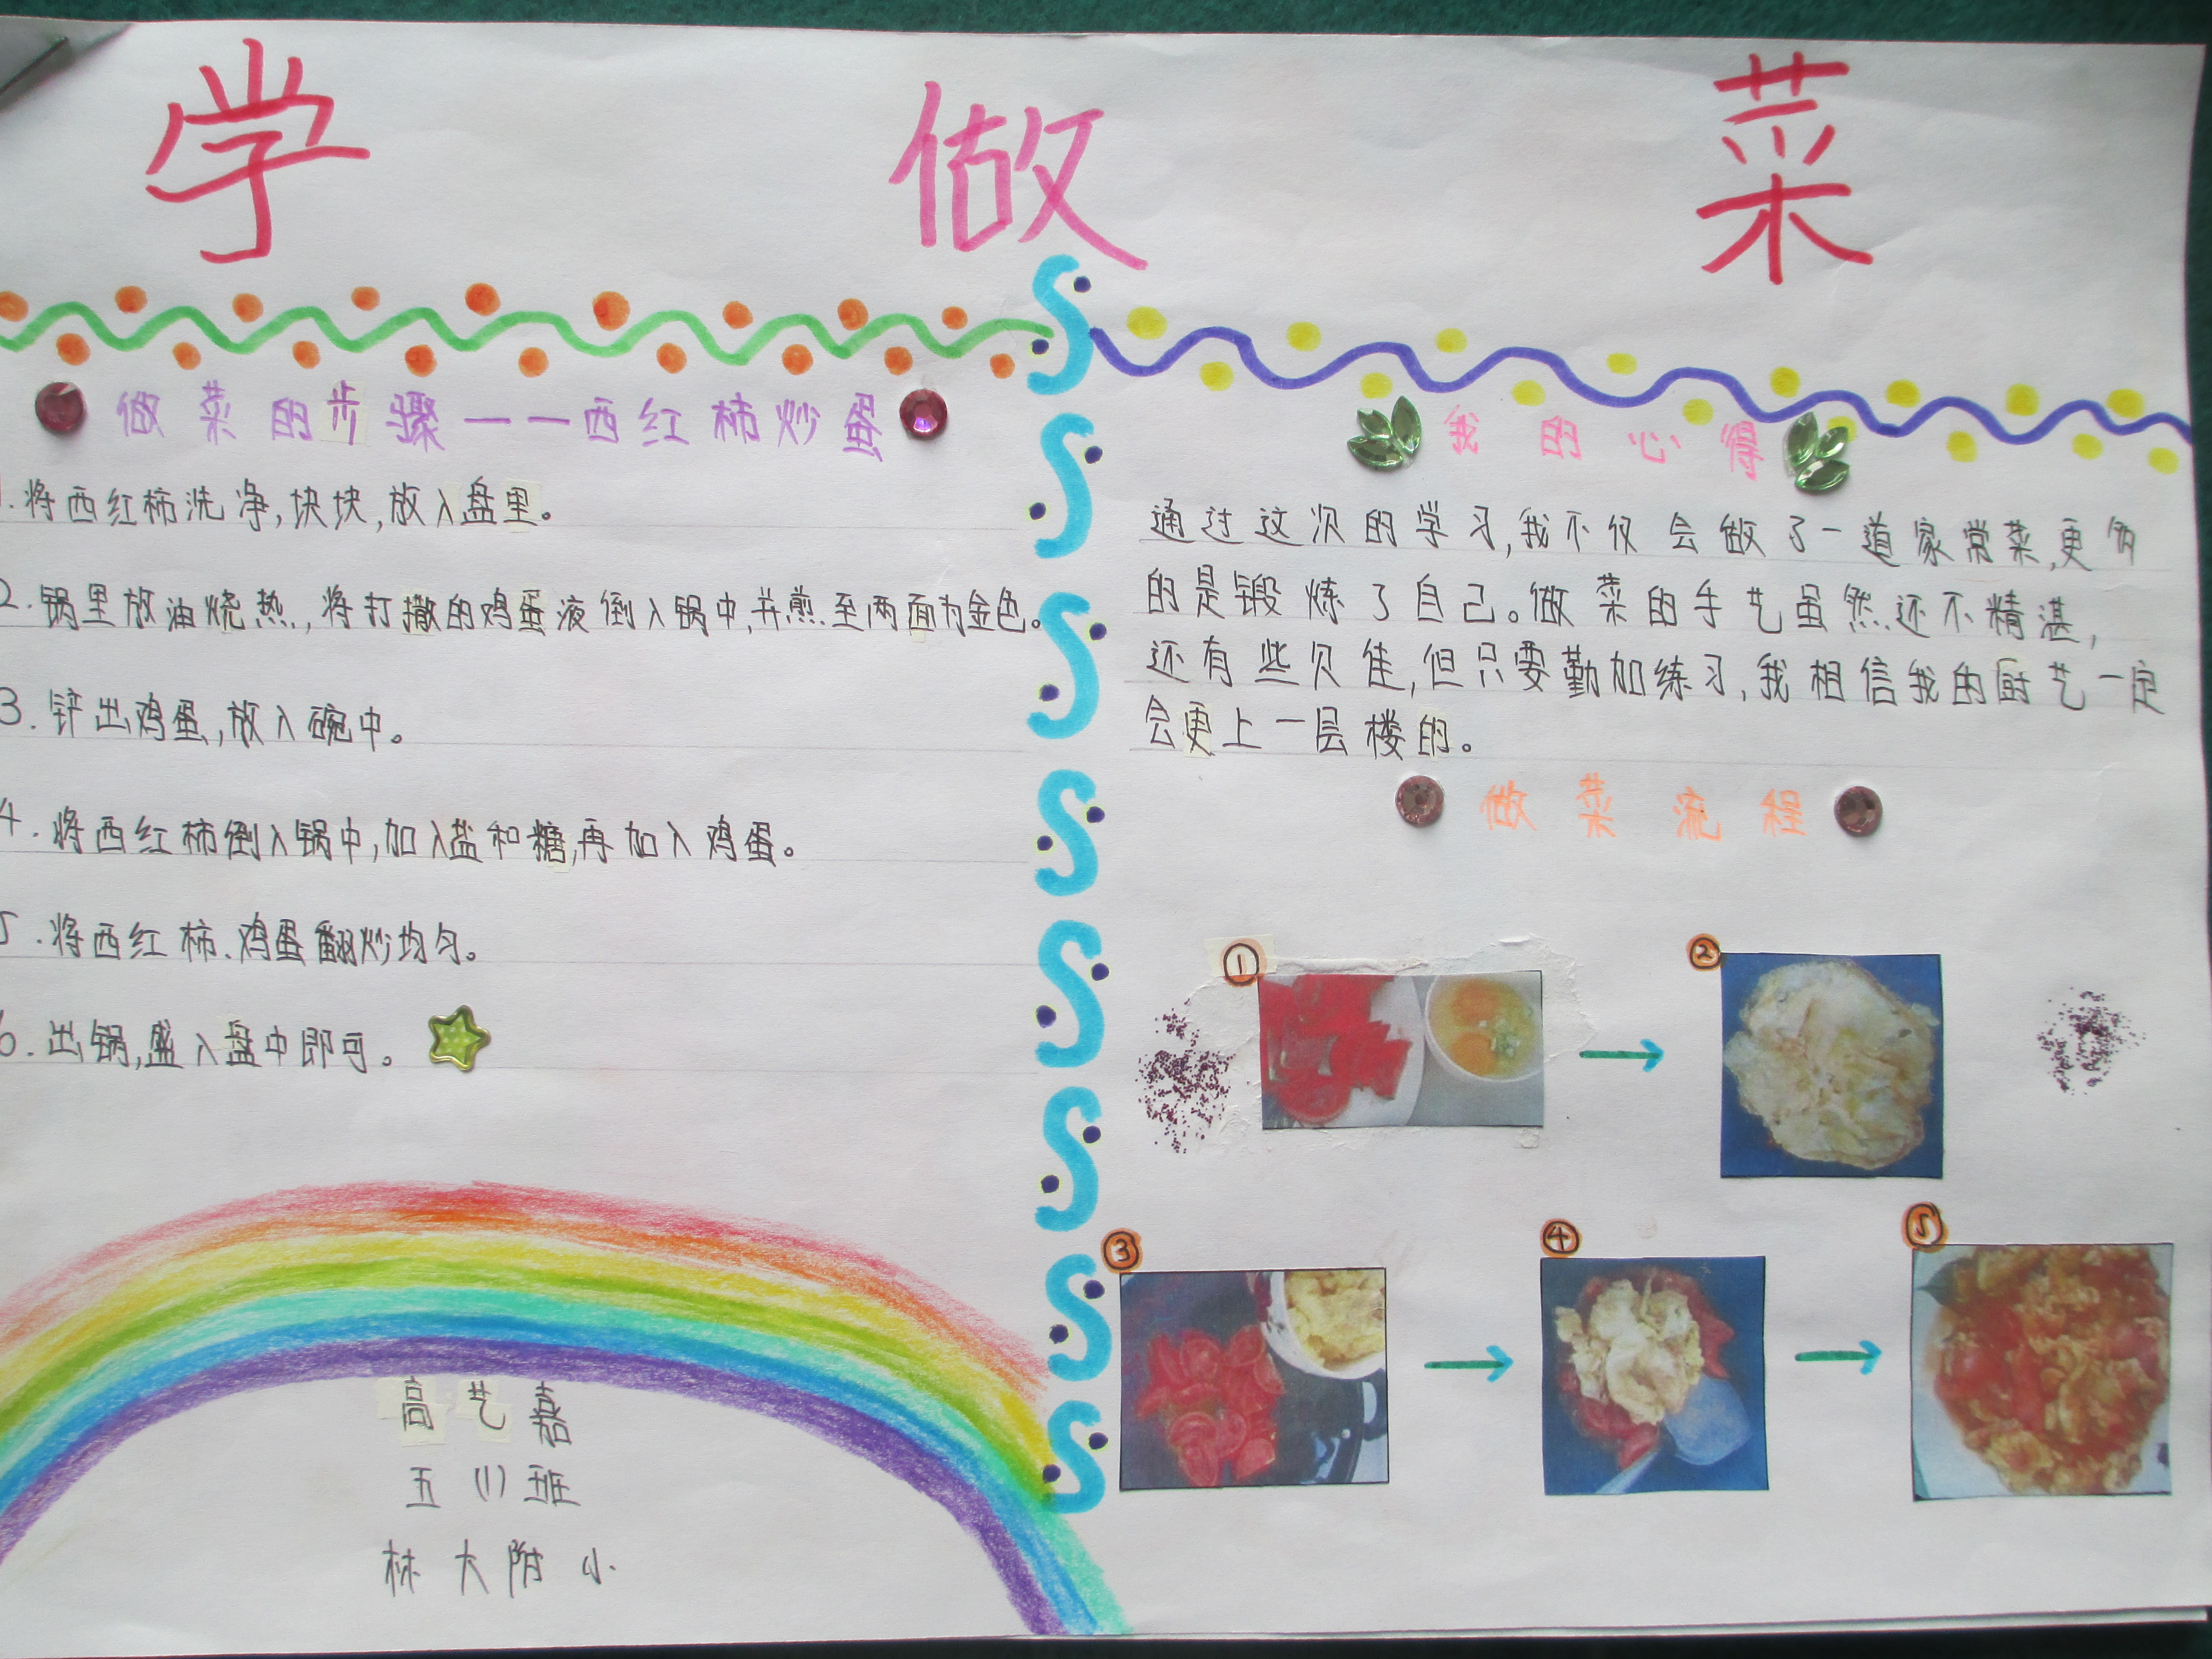 学做菜
做菜的步骤——西红柿炒蛋
1.将西红柿洗净,块块,放入盘里。
2.锅里放油烧热,将打撒的鸡蛋液倒入锅中,并煎至两面为金色。
3.铲出鸡蛋,放入碗中。
4.将西红柿倒入锅中,加入盐和糖,再加入鸡蛋。
5.将西红柿、鸡蛋翻炒均匀。
6.出锅,盛入盘中即可。
高艺嘉
五(1)班
林大附小
我的心得
通过这次的学习,我不仅会做了一道家常菜,更多
的是锻炼了自己。做菜的手艺虽然还不精湛,
还有些欠佳,但只要勤加练习,我相信我的厨艺一定
会更上一层楼的。
做菜流程
①
②
③
④
⑤